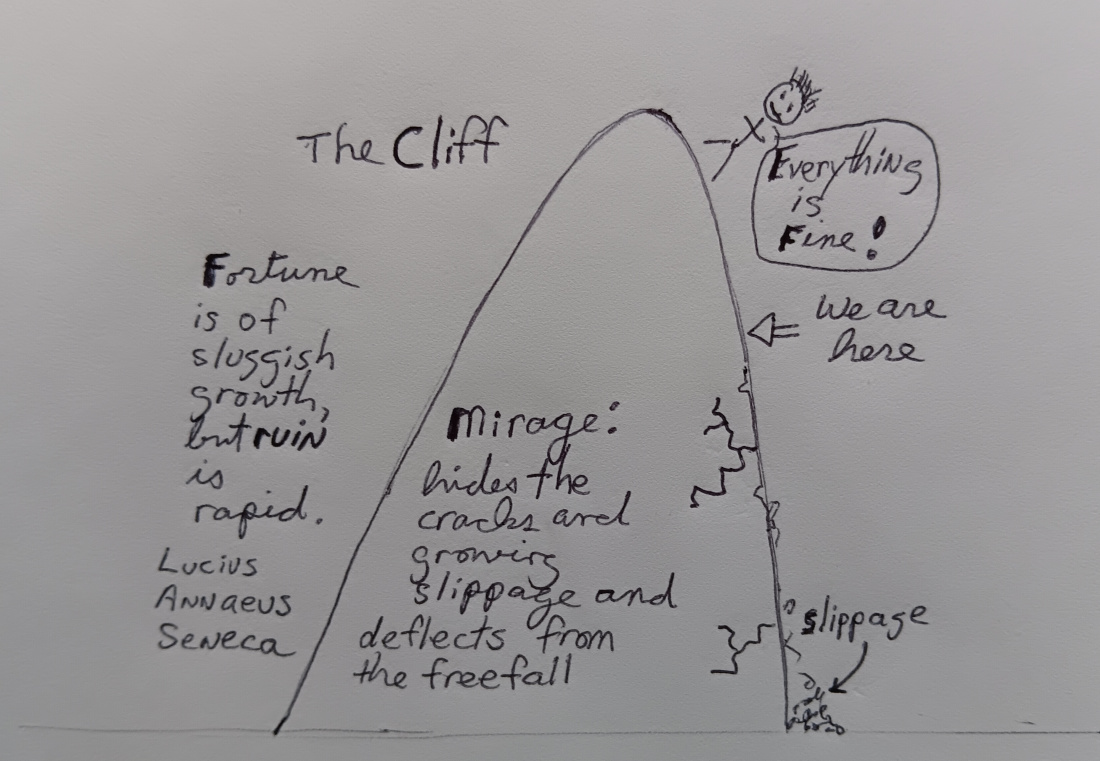 The Cliff
Everything
is
Fine!
We are
here
Fortune
is of
sluggish
growth,
but ruin
is
rapid.
Lucius
Annaeus
Seneca
Mirage:
hides the
cracks and
growing
slippage and
deflects from
the freefall
slippage